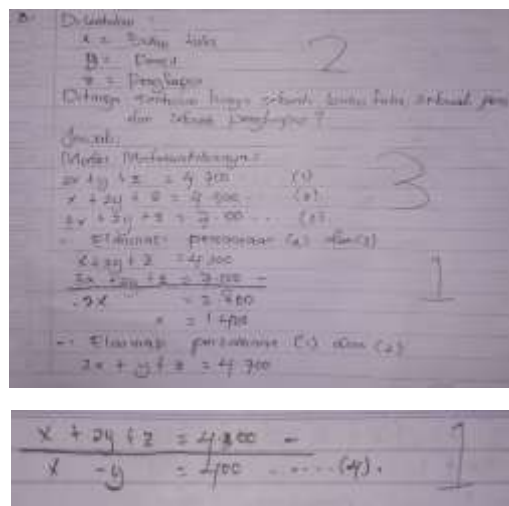 Diketahui :
x = Buku tulis
y = Pensil
z = Penghapus
2
Ditanya tentukan harga sebuah buku tulis, sebuah pensil
dan sebuah penghapus ?
Jawab:
Model Matematikanya:
2x + y + z = 4.700 (1)
x + 2y + z = 4.300 ... (2)
3
3x + 2y + z = 7.100 ... (3)
-. Eliminasi persamaan (2) dan (3)
x + 2y + z = 4.300
3x + 2y + z = 7.100 -
1
-2x = 2.800
x = 1.400
-. Eliminasi persamaan (1) dan (2)
2x + y + z = 4.700
x + 2y + z = 4.300 -
x - y = 400 ...... (4).
1